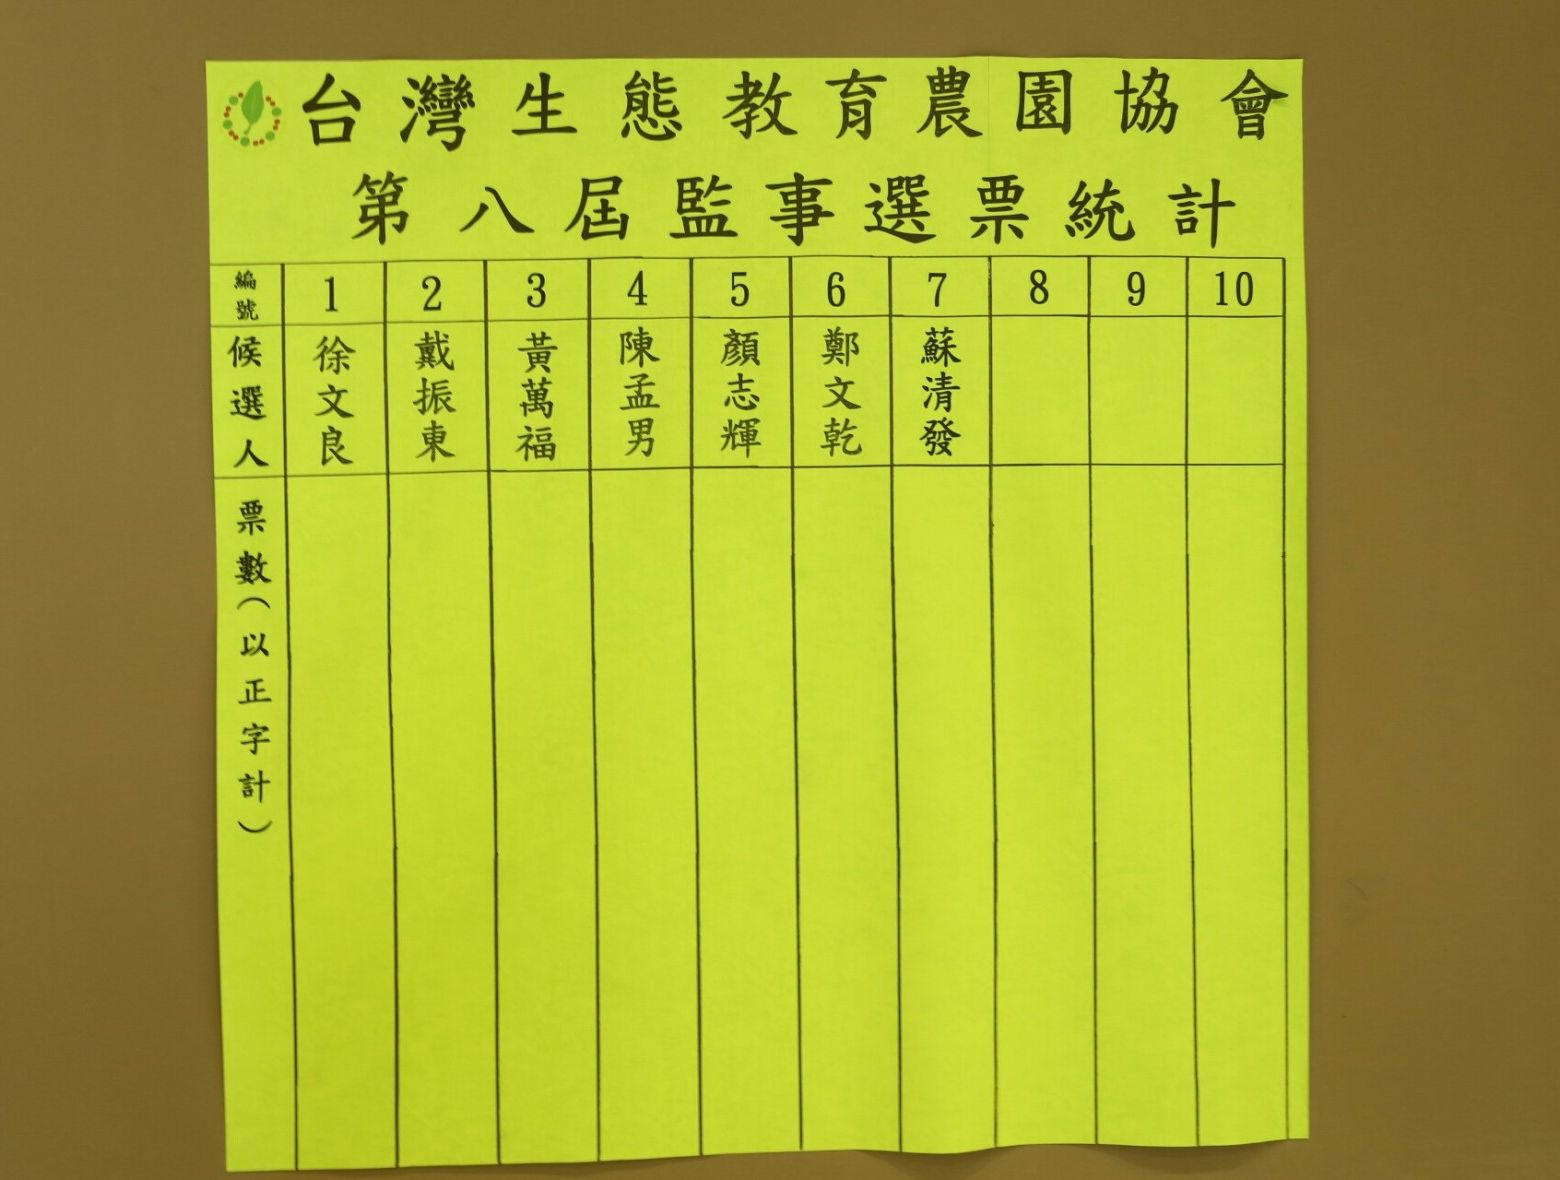 台灣生態教育農園協會
第八屆監事選票統計
編號 1 2 3 4 5 6 7 8 9 10
候選人 徐文良 戴振東 黃萬福 陳孟男 顏志輝 鄭文乾 蘇清發
票數（以正字計）